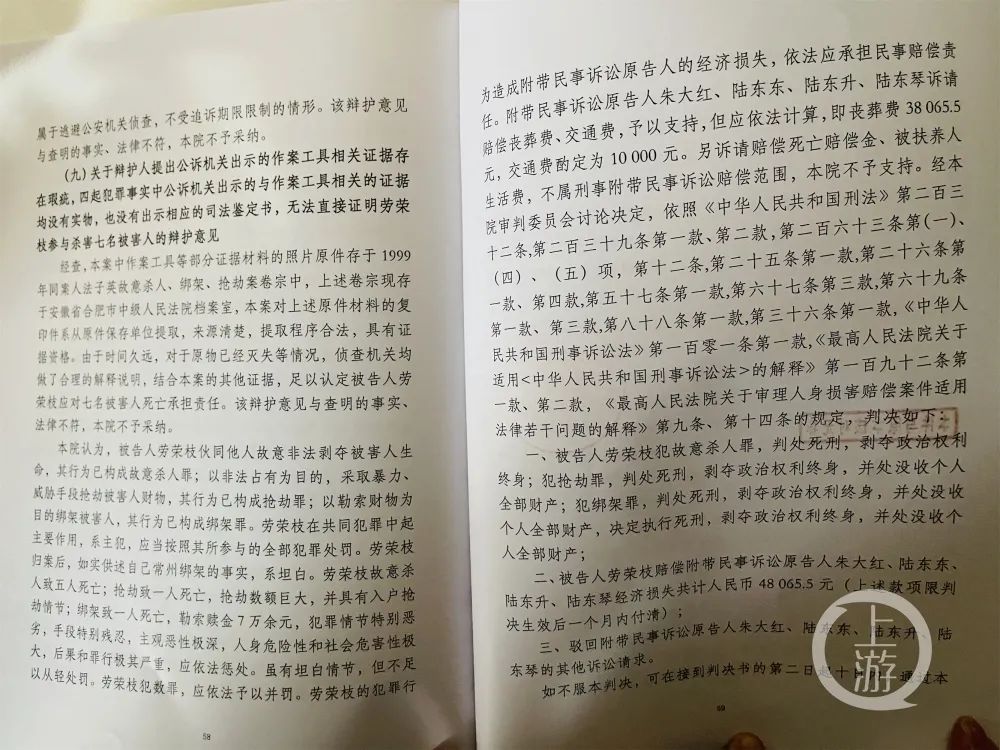 属于逃避公安机关侦查，不受追诉期限限制的情形。该辩护意见
与查明的事实、法律不符，本院不予采纳。
（九）关于辩护人提出公诉机关出示的作案工具相关证据存
在瑕疵，四起犯罪事实中公诉机关出示的与作案工具相关的证据
均没有实物，也没有出示相应的司法鉴定书，无法直接证明劳荣
枝参与杀害七名被害人的辩护意见
经查，本案中作案工具等部分证据材料的照片原件存于 1999
年同案人法子英故意杀人、绑架、抢劫案卷宗中，上述卷宗现存
于安徽省合肥市中级人民法院档案室，本案对上述原件材料的复
印件系从原件保存单位提取，来源清楚，提取程序合法，具有证
据资格。由于时间久远，对于原物已经灭失等情况，侦查机关均
做了合理的解释说明，结合本案的其他证据，足以认定被告人劳
荣枝应对七名被害人死亡承担责任。该辩护意见与查明的事实、
法律不符，本院不予采纳。
本院认为，被告人劳荣枝伙同他人故意非法剥夺被害人生
命，其行为已构成故意杀人罪；以非法占有为目的，采取暴力、
威胁手段抢劫被害人财物，其行为已构成抢劫罪；以勒索财物为
目的绑架被害人，其行为已构成绑架罪。劳荣枝在共同犯罪中起
主要作用，系主犯，应当按照其所参与的全部犯罪处罚。劳荣枝
归案后，如实供述自己常州绑架的事实，系坦白。劳荣枝故意杀
人致五人死亡；抢劫致一人死亡，抢劫数额巨大，并具有入户抢
劫情节；绑架致一人死亡，勒索赎金 7 万余元，犯罪情节特别恶
劣，手段特别残忍，主观恶性极深，人身危险性和社会危害性极
大，后果和罪行极其严重，应依法惩处。虽有坦白情节，但不足
以从轻处罚。劳荣枝犯数罪，应依法予以并罚。劳荣枝的犯罪行
58
为造成附带民事诉讼原告人的经济损失，依法应承担民事赔偿责
任。附带民事诉讼原告人朱大红、陆东东、陆东升、陆东琴诉请
赔偿丧葬费、交通费，予以支持，但应依法计算，即丧葬费 38 065.5
元，交通费酌定为 10 000 元。另诉请赔偿死亡赔偿金、被扶养人
生活费，不属刑事附带民事诉讼赔偿范围，本院不予支持。经本
院审判委员会讨论决定，依照《中华人民共和国刑法》第二百三
十二条,第二百三十九条第一款、第二款,第二百六十三条第(一)、
(四)、（五）项，第十二条,第二十五条第一款,第二十六条第
一款、第四款,第五十七条第一款,第六十七条第三款,第六十九条
第一款、第三款,第八十八条第一款,第三十六条第一款，《中华人
民共和国刑事诉讼法》第一百零一条第一款,《最高人民法院关于
适用<中华人民共和国刑事诉讼法>的解释》第一百九十二条第
一款、第二款，《最高人民法院关于审理人身损害赔偿案件适用
法律若干问题的解释》第九条、第十四条的规定，判决如下：
一、被告人劳荣枝犯故意杀人罪，判处死刑，剥夺政治权利
终身；犯抢劫罪，判处死刑，剥夺政治权利终身，并处没收个人
全部财产；犯绑架罪，判处死刑，剥夺政治权利终身，并处没收
个人全部财产，决定执行死刑，剥夺政治权利终身，并处没收个
人全部财产；
二、被告人劳荣枝赔偿附带民事诉讼原告人朱大红、陆东东、
陆东升、陆东琴经济损失共计人民币 48 065.5 元（上述款项限判
决生效后一个月内付清）；
三、驳回附带民事诉讼原告人朱大红、陆东东、陆东升、陆
东琴的其他诉讼请求。
如不服本判决，可在接到判决书的第二日起十日内，通过本
59
上游